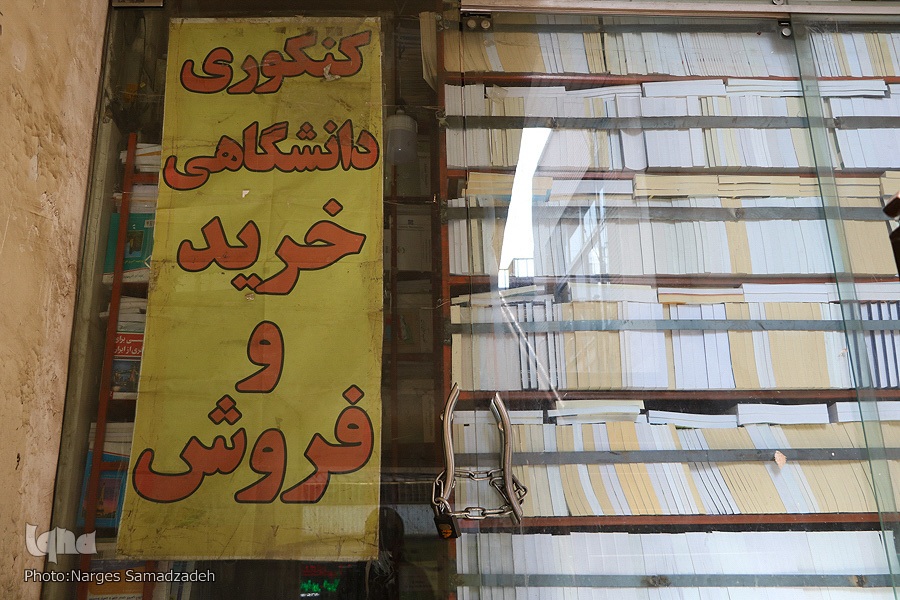 کنکوری
دانشگاهی
خرید
و
فروش
iqna
Photo:Narges Samadzadeh